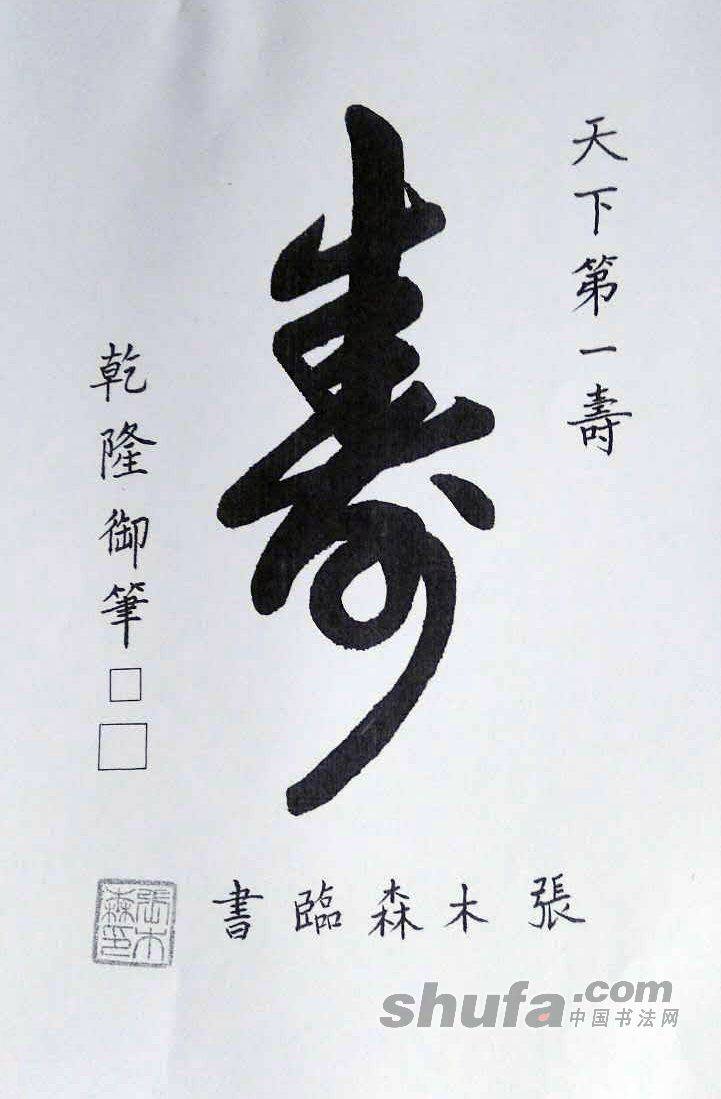 天下第一壽
壽
乾隆御筆
張木森臨書
張木森印
shufa.com
中国书法网